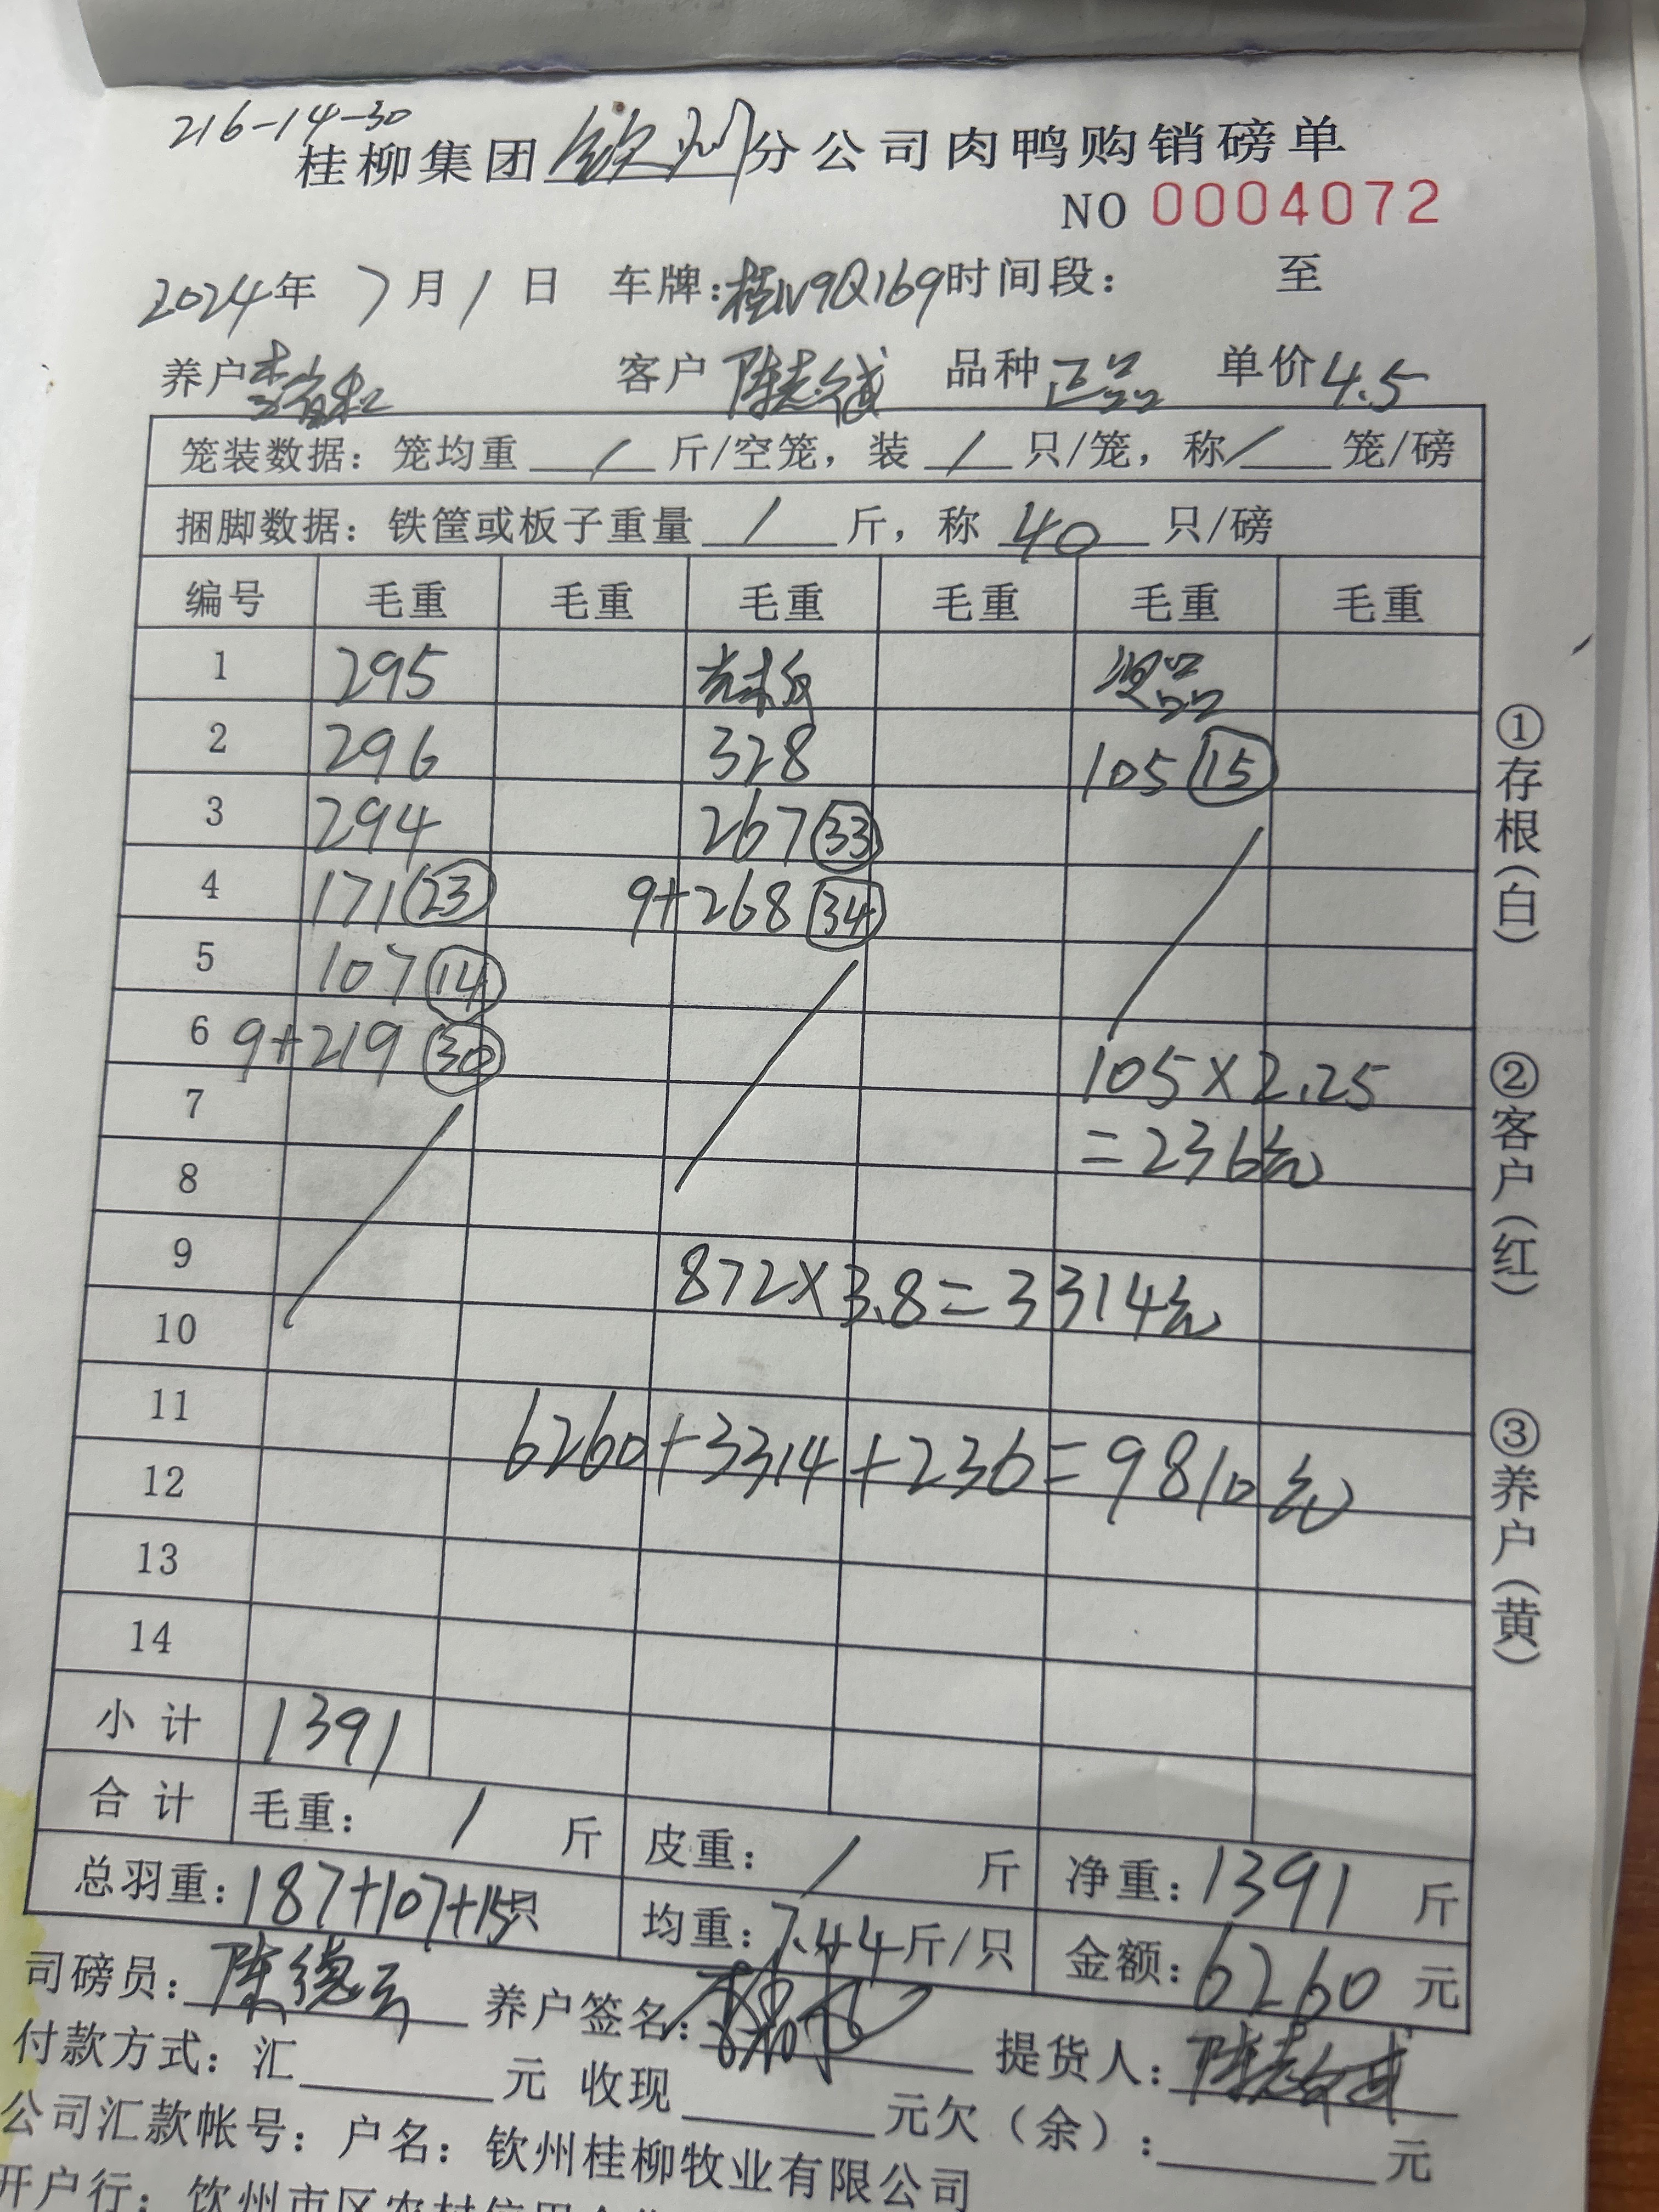 216-14-30
桂柳集团钦州分公司肉鸭购销磅单
NO 0004072
2024年 7月1日 车牌:桂N9Q169时间段: 至
养户 客户 陈志 品种 正品 单价4.5
笼装数据:笼均重 / 斤/空笼,装 / 只/笼,称 / 笼/磅
捆脚数据:铁筐或板子重量 / 斤,称 40 只/磅
编号 毛重 毛重 毛重 毛重 毛重 毛重
1 295 品
2 296 328 105 15
3 294 267 33
4 171 23 9+268 34
5 107 14
6 9+219 30
7 105×2.25
8 =236元
9 872×3.8=3314元
10
11 6260+3314+236=9810元
12
13
14
小计 1391
合计 毛重: / 斤 皮重: / 斤 净重:1391 斤
总羽重:187+107+15只 均重:7.44斤/只 金额:6260 元
司磅员:陈德云 养户签名: 提货人:陈志
付款方式:汇 元 收现 元欠(余): 元
公司汇款帐号:户名:钦州桂柳牧业有限公司
开户行:钦州市区农村信用合作
①存根(白)
②客户(红)
③养户(黄)